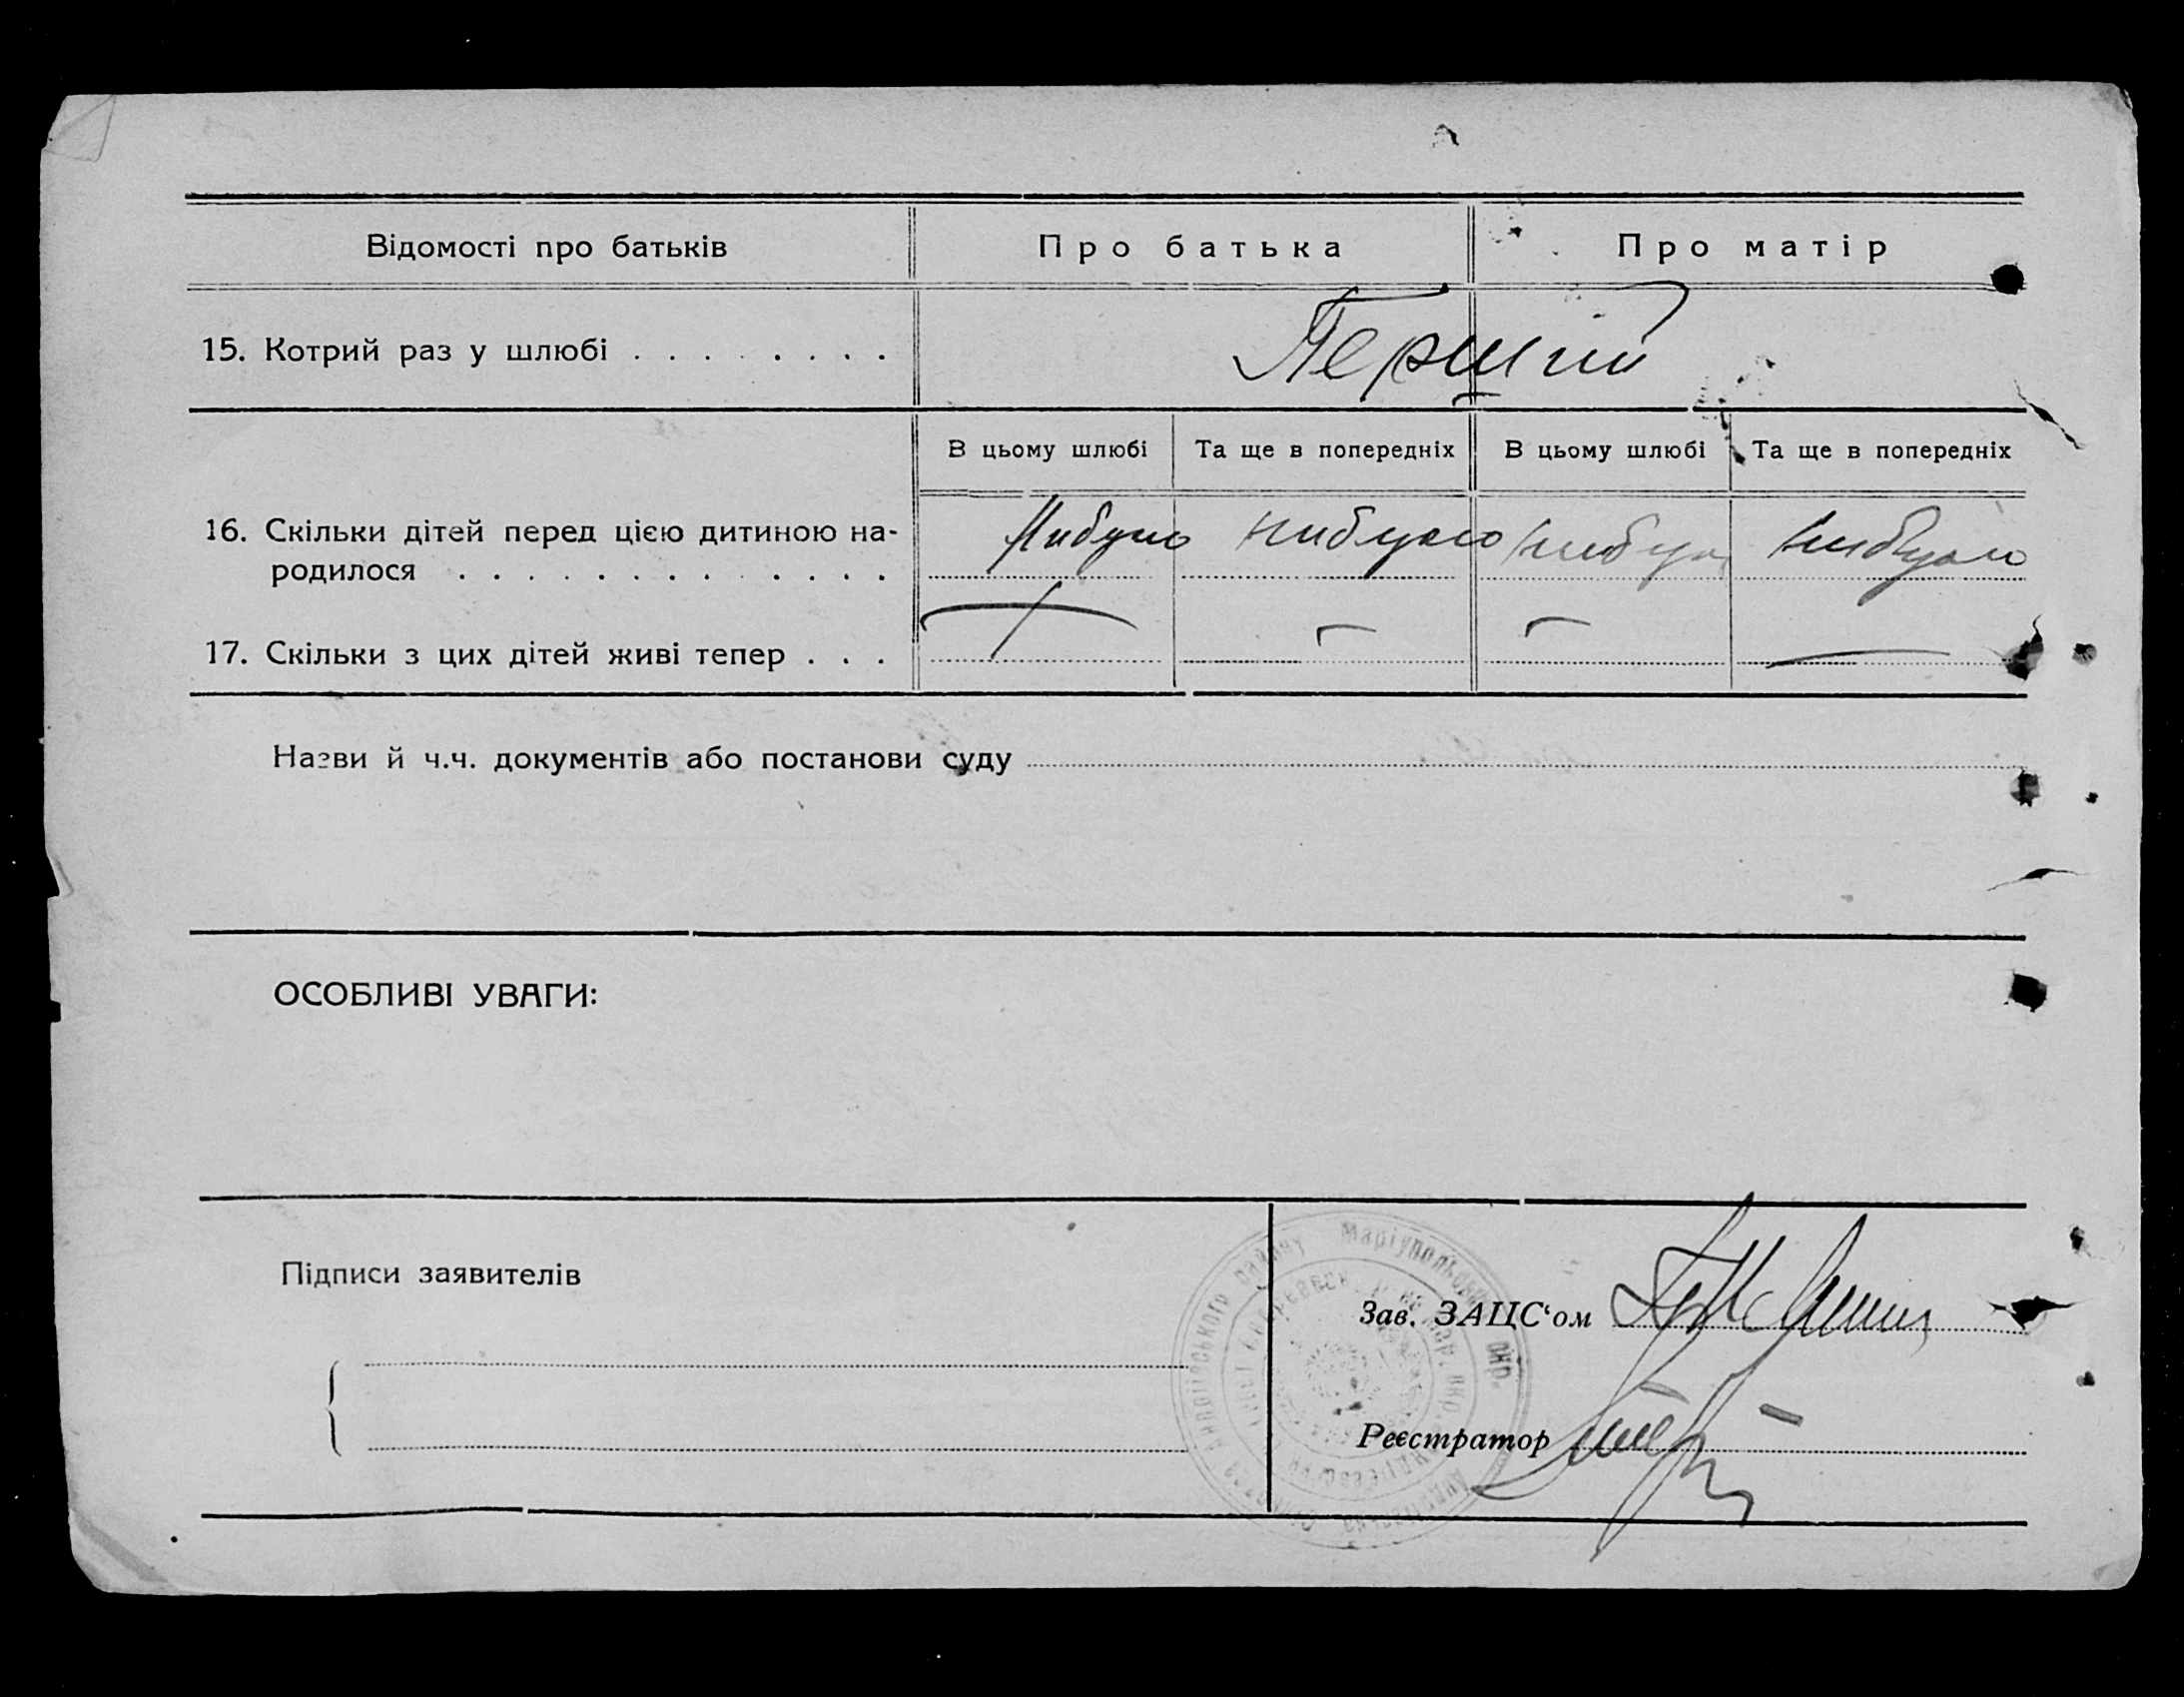 Відомості про батьків
Про батька
Про матір
15. Котрий раз у шлюбі . . . . . . . .
Перший
В цьому шлюбі
Та ще в попередніх
В цьому шлюбі
Та ще в попередніх
16. Скільки дітей перед цією дитиною на-
родилося . . . . . . . . . . . .
нибуло нибуло нибуло нибуло
17. Скільки з цих дітей живі тепер . . .
— — — —
Назви й ч.ч. документів або постанови суду
ОСОБЛИВІ УВАГИ:
Підписи заявителів
Зав. ЗАЦС‘ом
Реєстратор
Маріупольської окр.